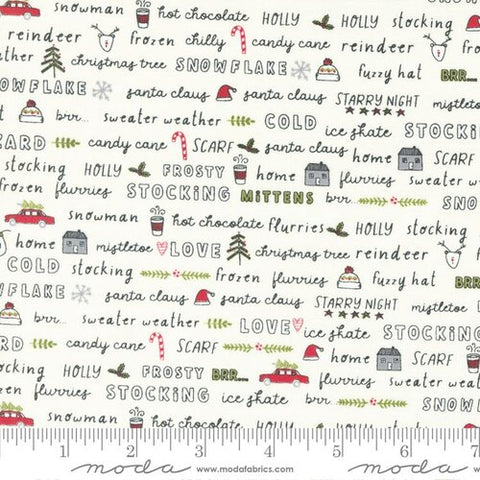 snowman hot chocolate HOLLY stocking
reindeer frozen chilly candy cane reindeer
SNOWFLAKE christmas tree SNOWFLAKE fuzzy hat BRR...
santa claus santa claus STARRY NIGHT mistletoe
brr... sweater weather COLD ice skate STOCKIN
ZARD candy cane SCARF home SCARF
stocking HOLLY FROSTY home flurries sweater weather
frozen flurries STOCKING MITTENS brr...
snowman hot chocolate flurries HOLLY
home mistletoe LOVE christmas tree reindeer
COLD stocking frozen flurries fuzzy hat BRR
FLAKE santa claus santa claus STARRY NIGHT mistletoe
brr... sweater weather LOVE ice skate STOCKING
ARD candy cane SCARF home SCARF
stocking HOLLY FROSTY BRR... flurries sweater weather
frozen flurries STOCKING ice skate brr... SNOW
snowman hot chocolate HOLLY
1 2 3 4 5 6 7
moda www.modafabrics.com moda